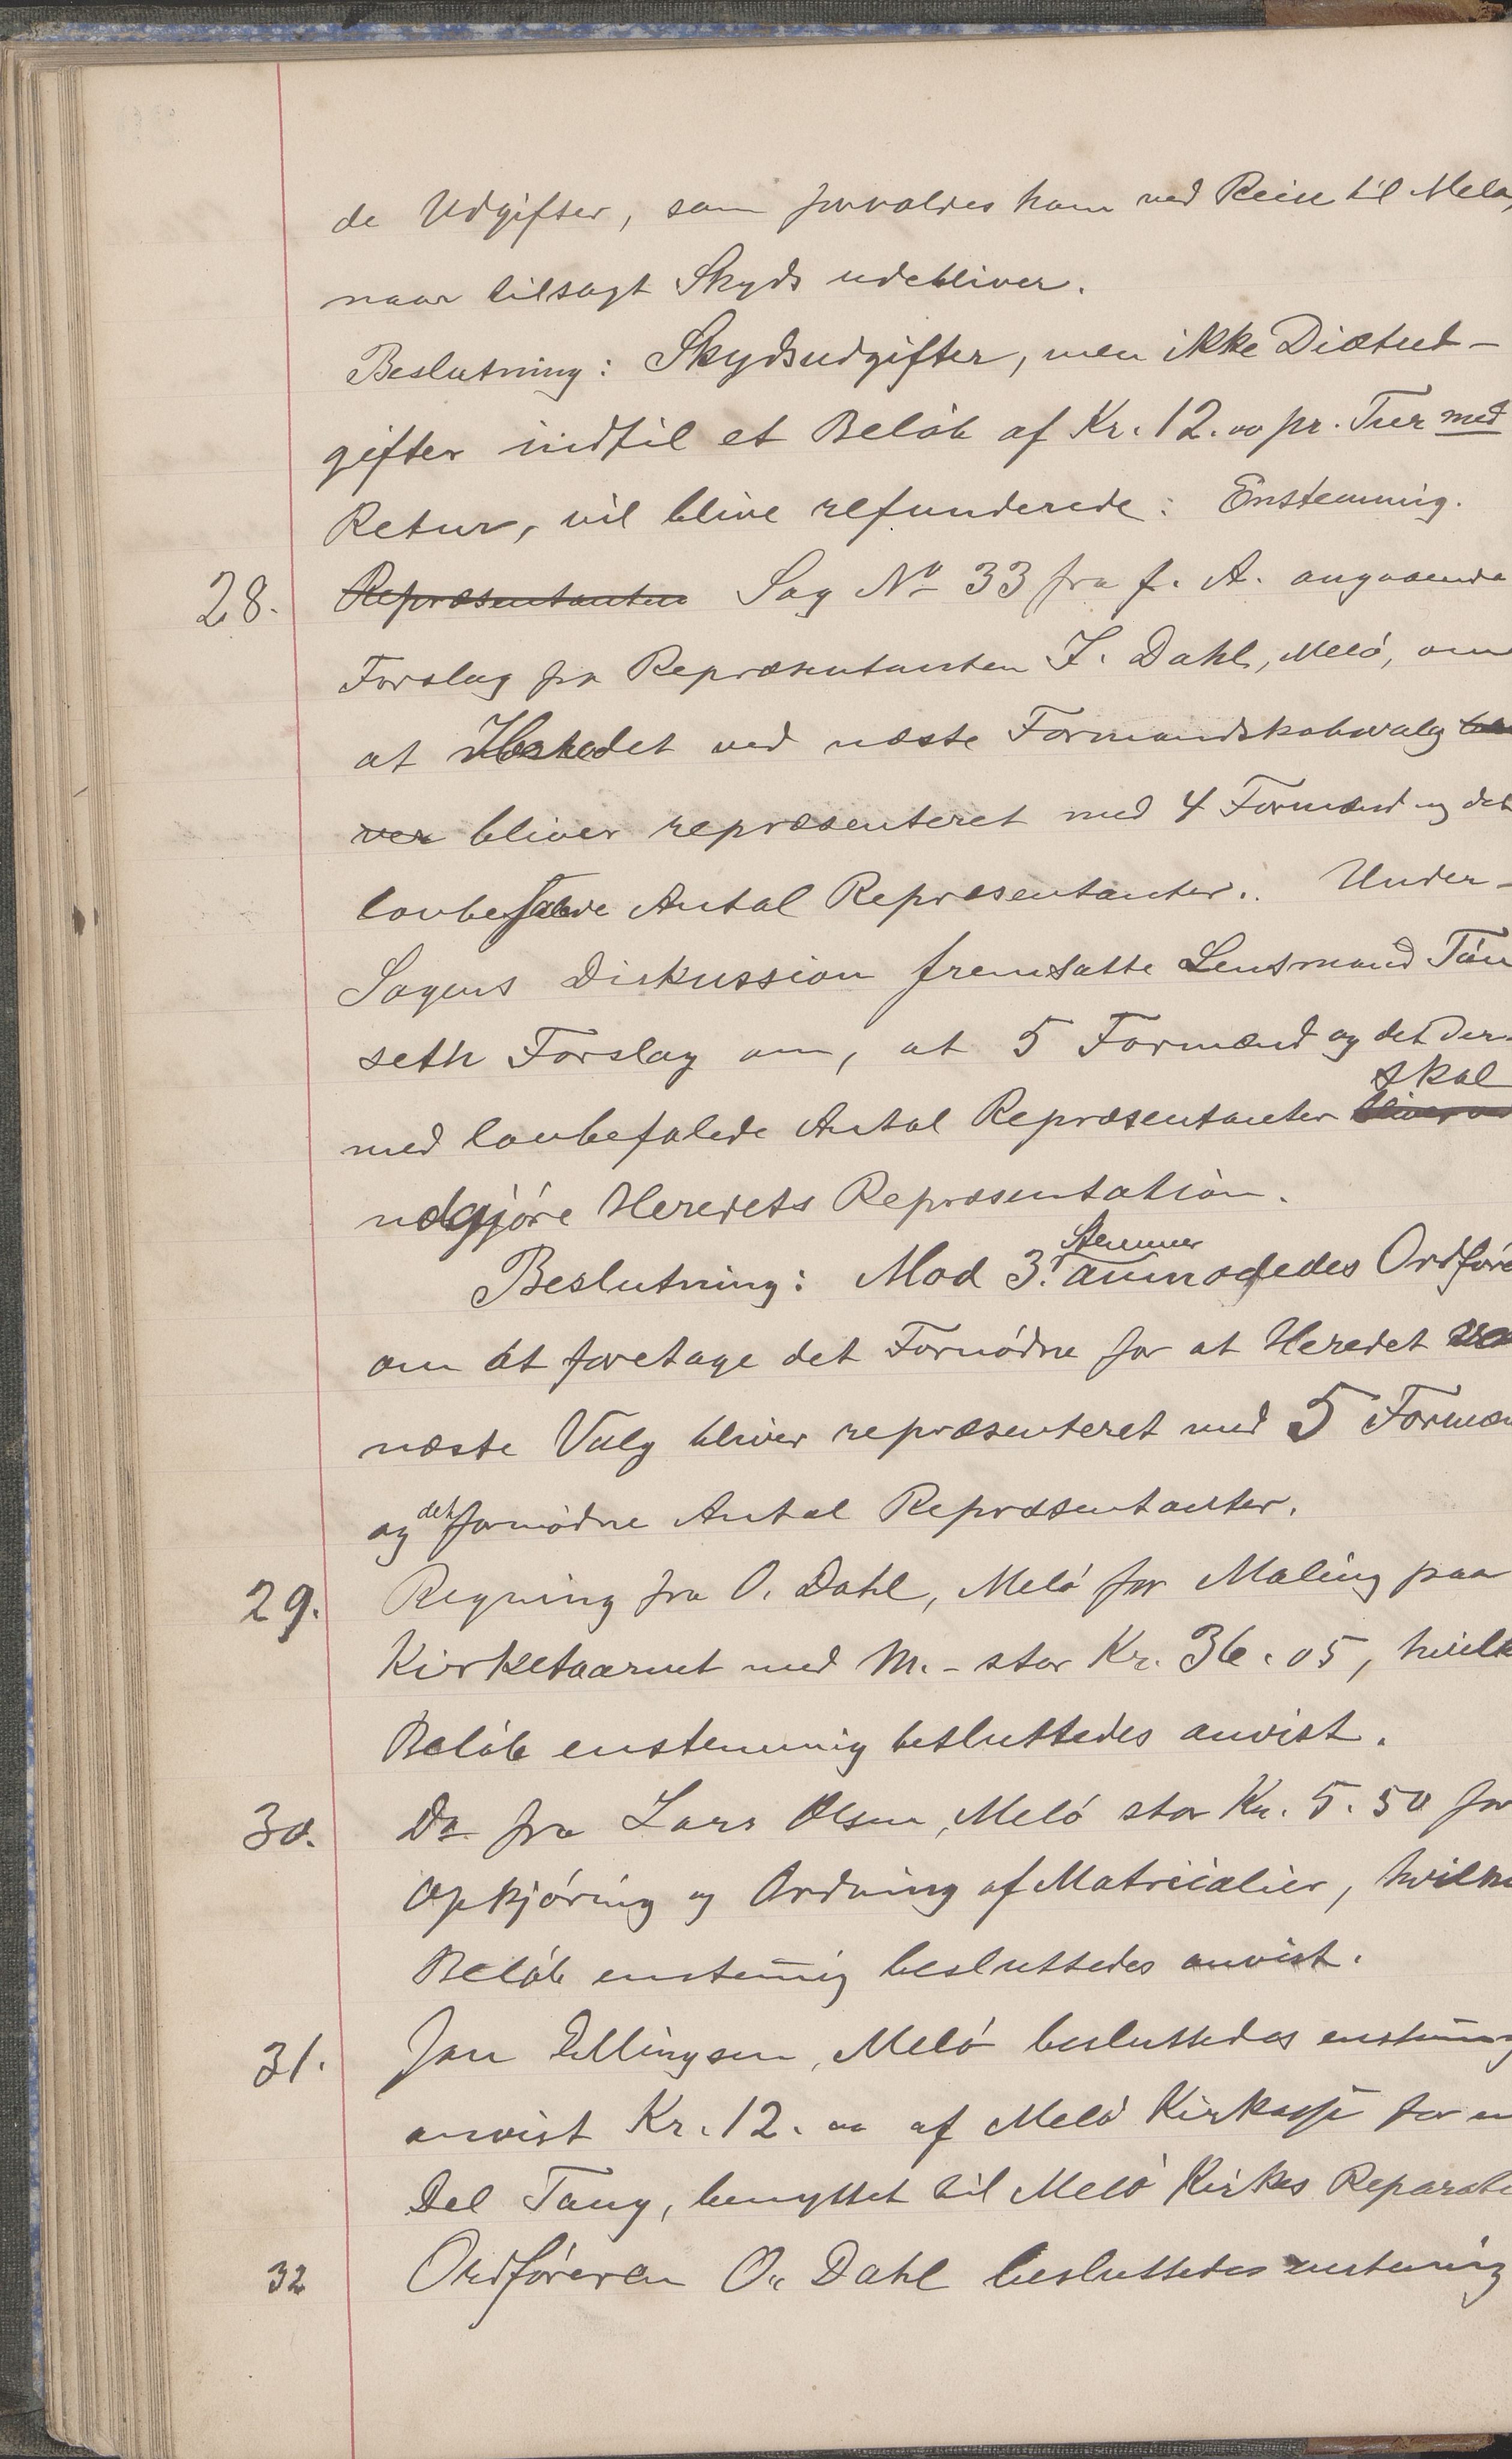 de Udgifter, som forvoldes ham ved Reise til Melø,
naar tilsagt Skyds udebliver.
Beslutning: Skydsudgifter, men ikke Diætud-
gifter indtil et Beløb af Kr. 12.00 pr. Tur med
Retur, vil blive refunderede: Enstemmig.
28. Repræsentanten Sag No 33 fra f. A. angaaende
Forslag fra Repræsentanten J. Dahl, Melø, om
at Heredet ved næste Formandskabsvalg bli
ver bliver repræsenteret med 4 Formænd og det
lovbefalede Antal Repræsentanter. Under-
Sagens Diskussion fremsatte Lensmand Tøn
seth Forslag om, at 5 Formænd og det der-
skal
med lovbefalede Antal Repræsentanter bliver
udgjøre Heredets Repræsentation.
Stemmer
Beslutning: Mod 3 anmodedes Ordføre
om at foretage det Fornødne for at Heredet ved
næste Valg bliver repræsenteret med 5 Formæn
og det fornødne Antal Repræsentanter.
29. Regning fra O. Dahl, Melø for Maling paa
Kirketaarnet med M. - stor Kr. 36.05, hvilk
Beløb enstemmig besluttedes anvist.
30. Do fra Lars Olsen, Melø stor Kr. 5.50 for
Opkjøring og Ordning af Matricialier, hvilke
Beløb enstem̄ig besluttedes anvist.
31. Jan Ellingsen, Melø besluttedes enstem̄ig
anvist Kr. 12.00 af Melø Kirkasse for en
Del Tang, benyttet til Melø Kirkes Reparati
32 Ordføreren O. Dahl besluttedes enstemig